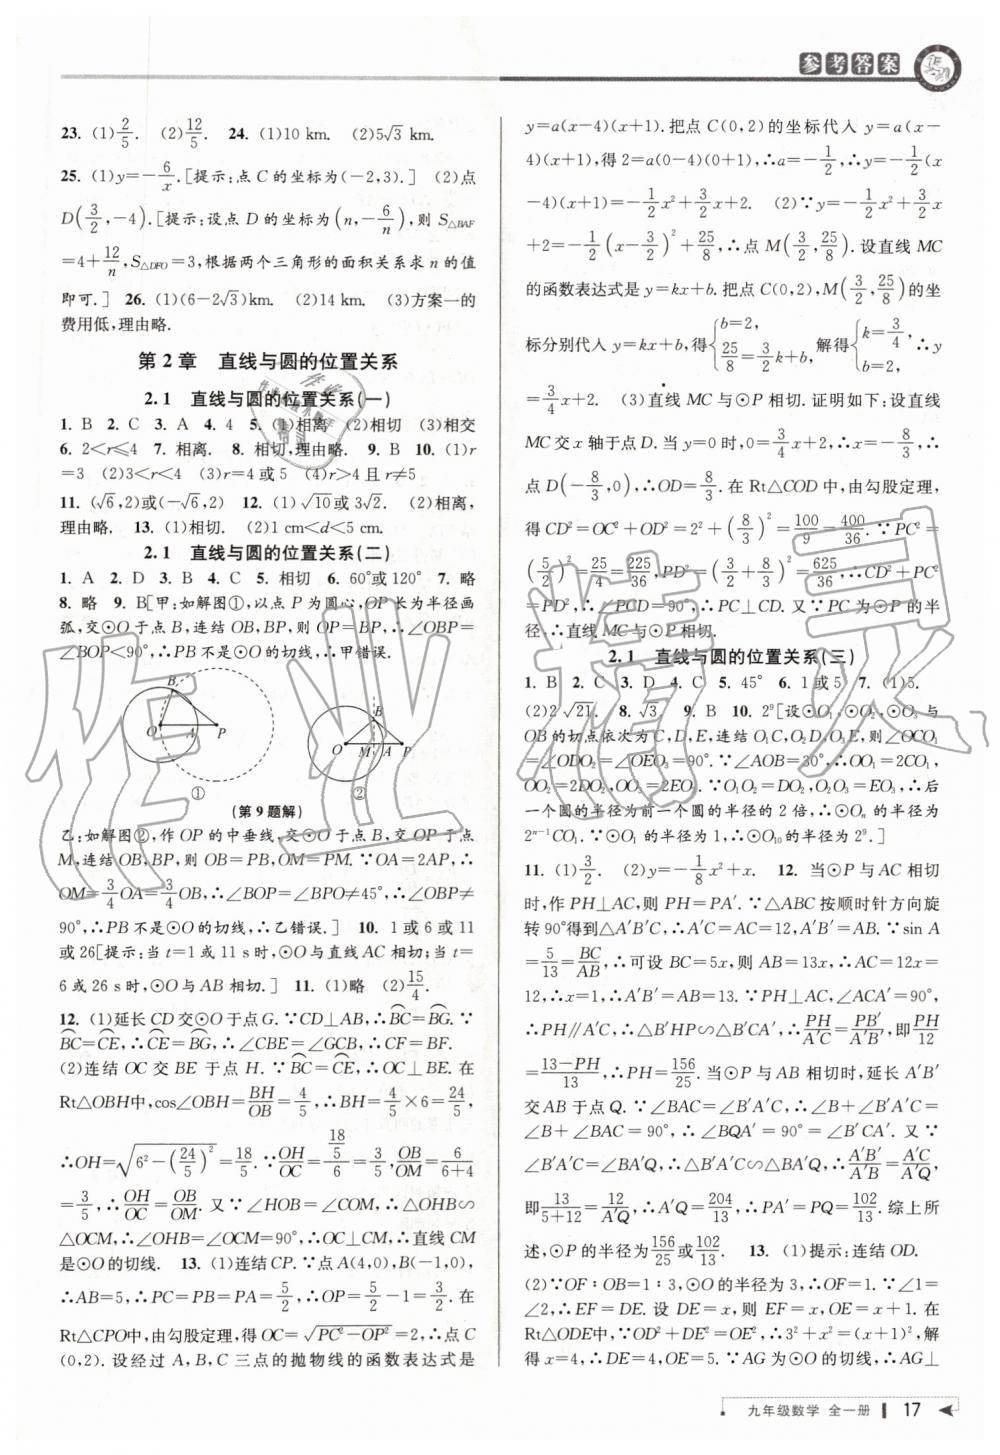 参考答案
23. (1)2/5. (2)12/5. 24. (1)10 km. (2)5√3 km.
25. (1)y=-6/x.[提示:点 C 的坐标为(-2,3).] (2)点
D(3/2,-4).[提示:设点 D 的坐标为(n,-6/n),则 S△BAF
=4+12/n,S△DFO=3,根据两个三角形的面积关系求 n 的值
即可.] 26. (1)(6-2√3)km. (2)14 km. (3)方案一的
费用低,理由略.
第 2 章 直线与圆的位置关系
2.1 直线与圆的位置关系(一)
1. B 2. C 3. A 4. 4 5. (1)相离 (2)相切 (3)相交
6. 2<r≤4 7. 相离. 8. 相切,理由略. 9. B 10. (1)r
=3 (2)3<r<4 (3)r=4或5 (4)r>4 且 r≠5
11. (√6,2)或(-√6,2) 12. (1)√10或3√2. (2)相离,
理由略. 13. (1)相切. (2)1 cm<d<5 cm.
2.1 直线与圆的位置关系(二)
1. A 2. D 3. B 4. C 5. 相切 6. 60°或120° 7. 略
8. 略 9. B[甲:如解图①,以点 P 为圆心,OP 长为半径画
弧,交⊙O 于点 B,连结 OB,BP,则 OP=BP,∴∠OBP=
∠BOP<90°,∴PB 不是⊙O 的切线,∴甲错误.
B
O A P
①
B
O M A P
②
(第 9 题解)
乙:如解图②,作 OP 的中垂线,交⊙O 于点 B,交 OP 于点
M,连结 OB,BP,则 OB=PB,OM=PM.∵OA=2AP,∴
OM=3/4OA=3/4OB,∴∠BOP=∠BPO≠45°,∴∠OBP≠
90°,∴PB 不是⊙O 的切线,∴乙错误.] 10. 1 或 6 或 11
或 26[提示:当 t=1 或 11 s 时,⊙O 与直线 AC 相切;当 t=
6 或 26 s 时,⊙O 与 AB 相切.] 11. (1)略 (2)15/4.
12. (1)延长 CD 交⊙O 于点 G.∵CD⊥AB,∴⌒BC=⌒BG.∵
⌒BC=⌒CE,∴⌒CE=⌒BG,∴∠CBE=∠GCB,∴CF=BF.
(2)连结 OC 交 BE 于点 H.∵⌒BC=⌒CE,∴OC⊥BE.在
Rt△OBH中,cos∠OBH=BH/OB=4/5,∴BH=4/5×6=24/5,
∴OH=√(6²-(24/5)²)=18/5.∵OH/OC=(18/5)/6=3/5,OB/OM=6/(6+4)
=3/5,∴OH/OC=OB/OM.又∵∠HOB=∠COM,∴△OHB∽
△OCM,∴∠OHB=∠OCM=90°,∴OC⊥CM,∴直线 CM
是⊙O 的切线. 13. (1)连结 CP.∵点 A(4,0),B(-1,0),
∴AB=5,∴PC=PB=PA=5/2,∴OP=5/2-1=3/2.在
Rt△CPO中,由勾股定理,得 OC=√(PC²-OP²)=2,∴点 C
(0,2).设经过 A,B,C 三点的抛物线的函数表达式是
y=a(x-4)(x+1).把点 C(0,2)的坐标代入 y=a(x-
4)(x+1),得 2=a(0-4)(0+1),∴a=-1/2,∴y=-1/2(x
-4)(x+1)=-1/2x²+3/2x+2. (2)∵y=-1/2x²+3/2x
+2=-1/2(x-3/2)²+25/8,∴点 M(3/2,25/8).设直线 MC
的函数表达式是 y=kx+b.把点 C(0,2),M(3/2,25/8)的坐
标分别代入 y=kx+b,得{b=2, 25/8=3/2k+b, 解得{k=3/4, b=2, ∴y
=3/4x+2. (3)直线 MC 与⊙P 相切.证明如下:设直线
MC 交 x 轴于点 D.当 y=0 时,0=3/4x+2,∴x=-8/3,∴
点 D(-8/3,0),∴OD=8/3.在 Rt△COD 中,由勾股定理,
得 CD²=OC²+OD²=2²+(8/3)²=100/9=400/36.∵PC²=
(5/2)²=25/4=225/36,PD²=(3/2+8/3)²=625/36,∴CD²+PC²
=PD²,∴∠PCD=90°,∴PC⊥CD.又∵PC 为⊙P 的半
径,∴直线 MC 与⊙P 相切.
2.1 直线与圆的位置关系(三)
1. B 2. C 3. D 4. C 5. 45° 6. 1 或 5 7. (1)5.
(2)2√21. 8. √3. 9. B 10. 2⁹[设⊙O₁,⊙O₂,⊙O₃与
OB 的切点依次为 C,D,E,连结 O₁C,O₂D,O₃E,则∠OCO₁
=∠ODO₂=∠OEO₃=90°.∵∠AOB=30°,∴OO₁=2CO₁,
OO₂=2DO₂,OO₃=2EO₃.∵O₁O₂=DO₂,O₂O₃=EO₃,∴后
一个圆的半径为前一个圆的半径的 2 倍,∴⊙Oₙ 的半径为
2ⁿ⁻¹CO₁.∵⊙O₁ 的半径为 1,∴⊙O₁₀的半径为 2⁹.]
11. (1)3/2. (2)y=-1/8x²+x. 12. 当⊙P 与 AC 相切
时,作 PH⊥AC,则 PH=PA′.∵△ABC 按顺时针方向旋
转 90°得到△A′B′C,∴A′C=AC=12,A′B′=AB.∵sin A
=5/13=BC/AB,∴可设 BC=5x,则 AB=13x,∴AC=12x=
12,∴x=1,∴A′B′=AB=13.∵PH⊥AC,∠ACA′=90°,
∴PH∥A′C,∴△B′HP∽△B′CA′,∴PH/A′C=PB′/A′B′,即PH/12
=(13-PH)/13,∴PH=156/25.当⊙P 与 AB 相切时,延长 A′B′
交 AB 于点 Q.∵∠BAC=∠B′A′C,∴∠B+∠B′A′C=
∠B+∠BAC=90°,∴∠BQA′=90°=∠B′CA′.又∵
∠B′A′C=∠BA′Q,∴△B′A′C∽△BA′Q,∴A′B′/A′B=A′C/A′Q,
即13/(5+12)=12/A′Q,∴A′Q=204/13,∴PA′=PQ=102/13.综上所
述,⊙P 的半径为156/25或102/13. 13. (1)提示:连结 OD.
(2)∵OF∶OB=1∶3,⊙O 的半径为 3,∴OF=1.∵∠1=
∠2,∴EF=DE.设 DE=x,则 EF=x,OE=x+1.在
Rt△ODE中,∵OD²+DE²=OE²,∴3²+x²=(x+1)²,解
得 x=4,∴DE=4,OE=5.∵AG 为⊙O 的切线,∴AG⊥
九年级数学 全一册 17